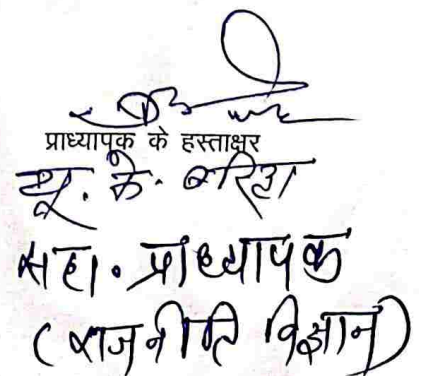 प्राध्यापक के हस्ताक्षर
यू. के. बरिहा
सहा. प्राध्यापक
(राजनीति विज्ञान)